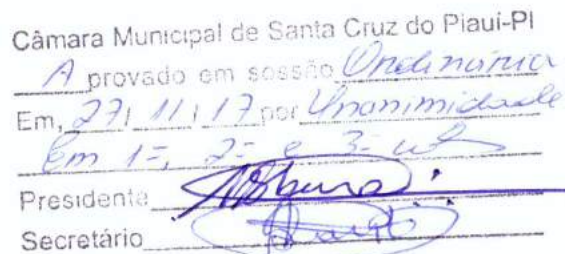 Câmara Municipal de Santa Cruz do Piauí-PI
A provado em sessão Ordinária
Em, 27/11/17 por Unanimidade
Em 1ª, 2ª e 3ª
Presidente
Secretário